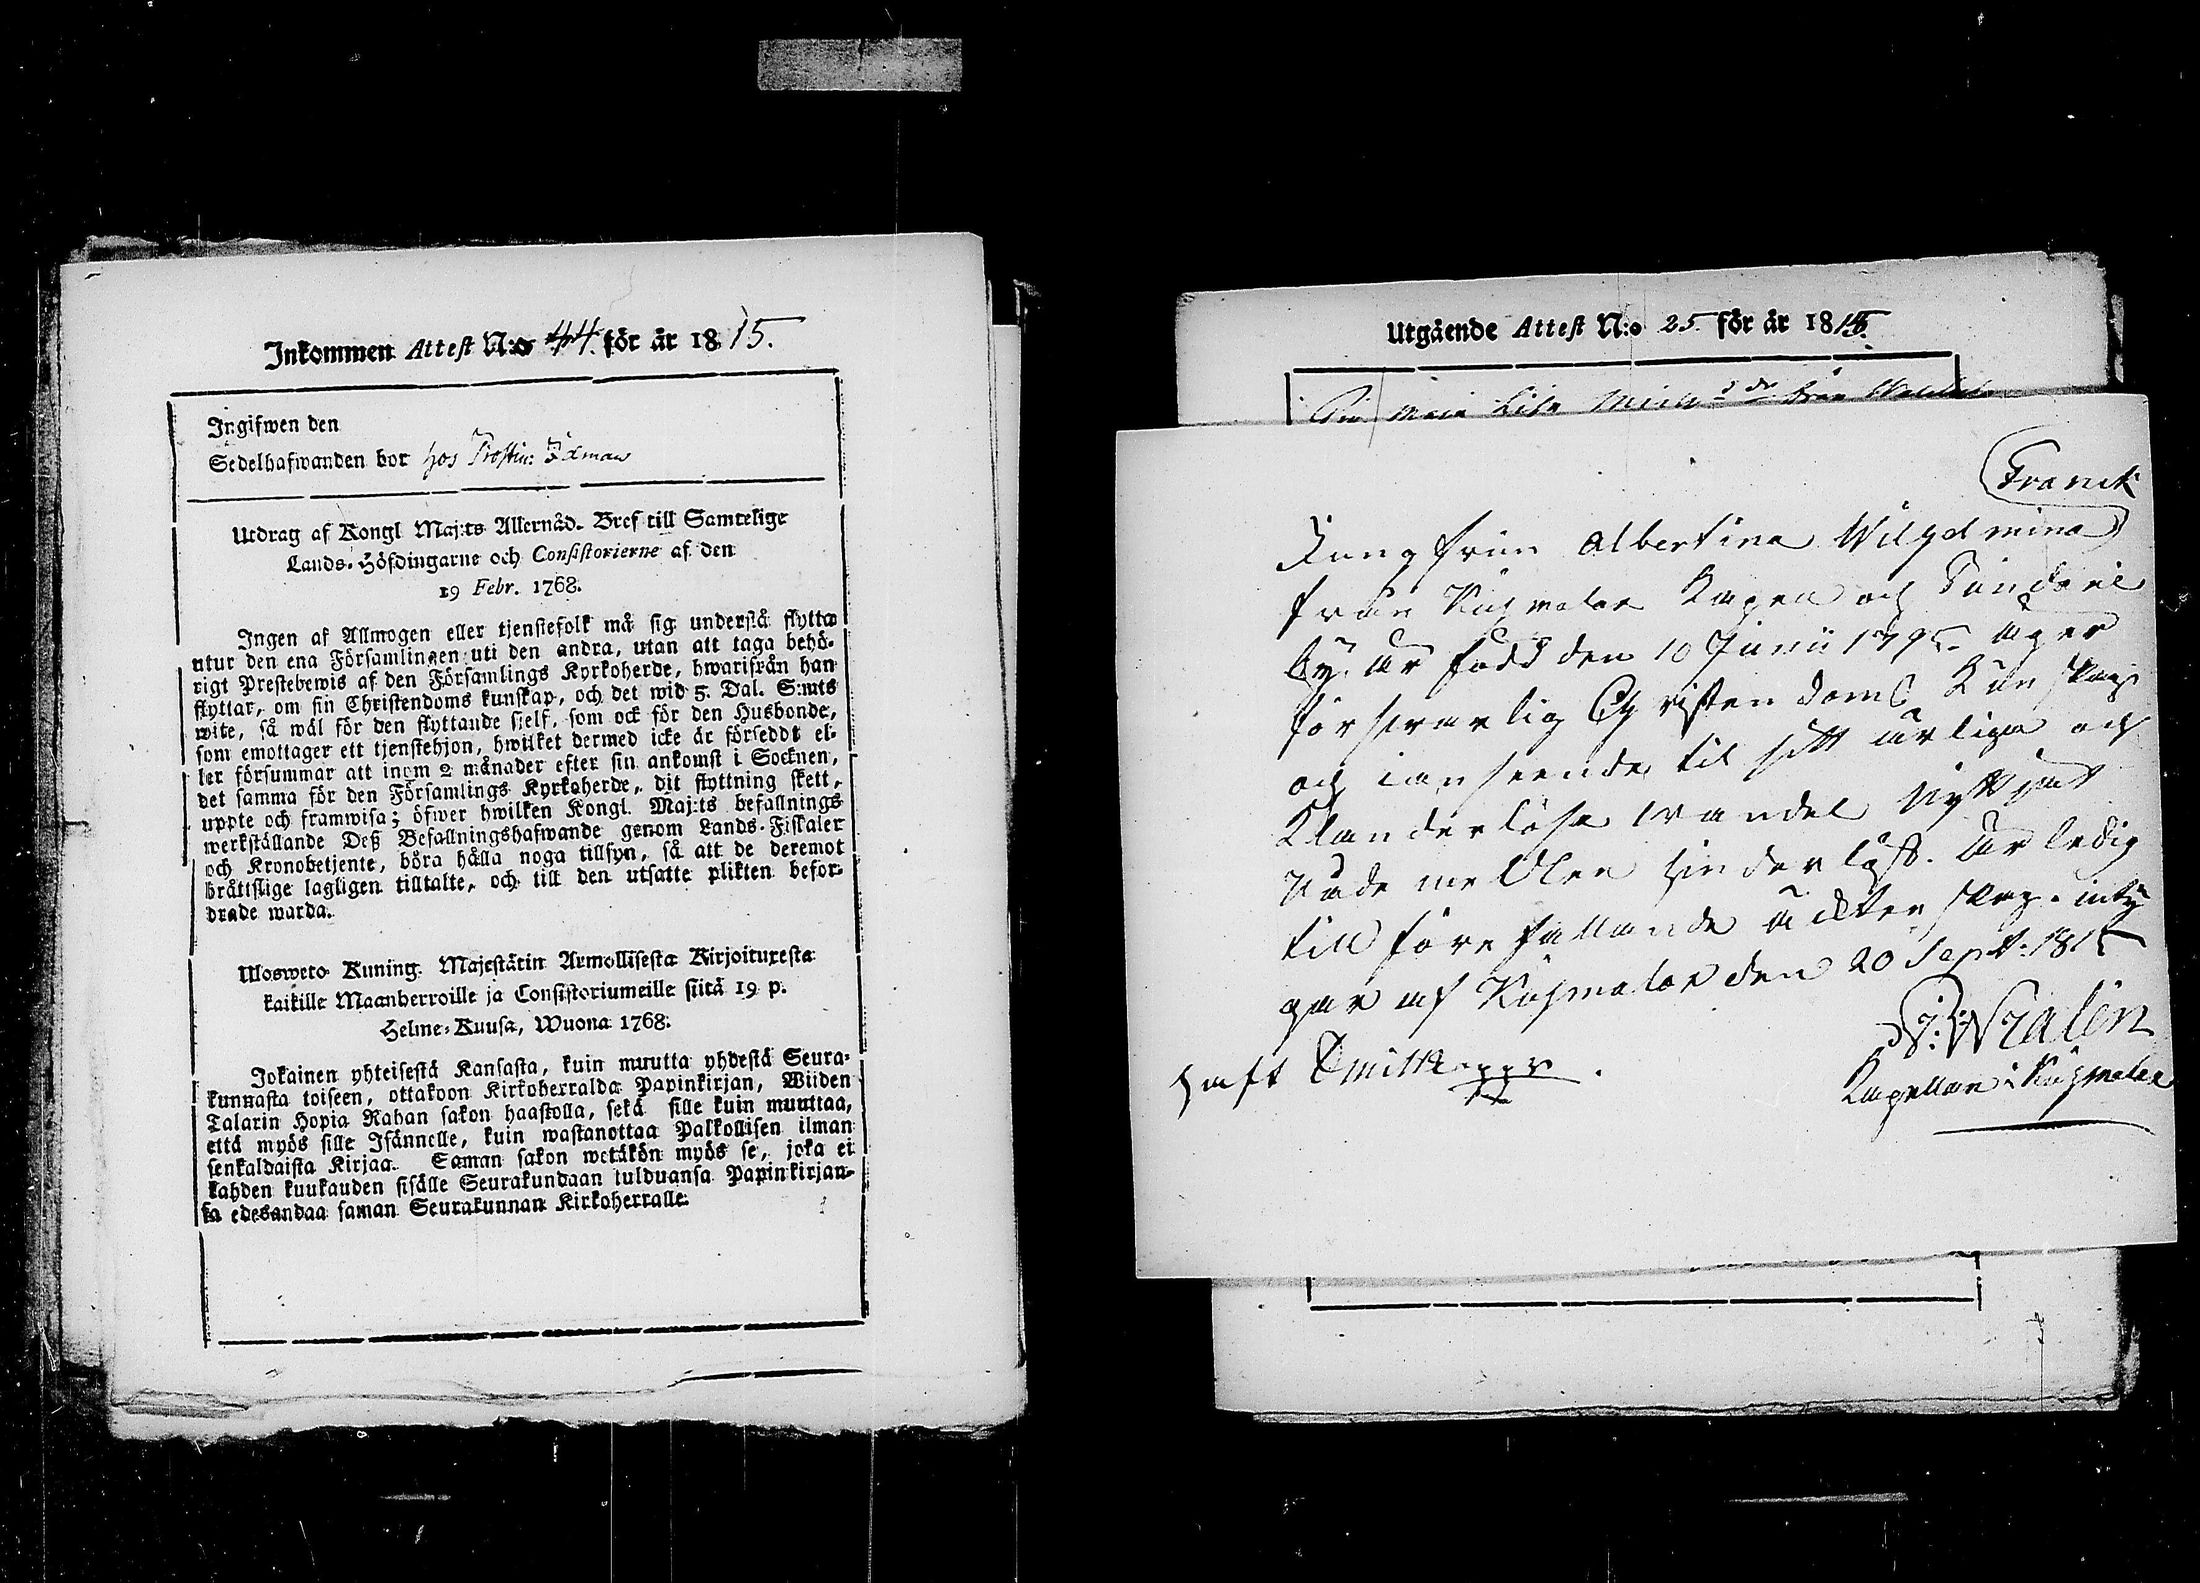 Inkommen Attest N:o 44. för år 1815.
Ingifwen den
Sedelhafwanden bor hos Prostin:
Utdrag af Kongl Maj:ts Allernåd. Bref till Samtelige
Lands-Höfdingarne och Consistorierne af den
19 Febr. 1768.
Ingen af Allmogen eller tjenstefolk må sig understå flytta
utur den ena Församlingen uti den andra, utan att taga behö-
rigt Prestebewis af den Församlings Kyrkoherde, hwarifrån han
flyttar, om sin Christendoms kunskap, och det wid 5. Dal. S:mts
wite, så wäl för den flyttande sjelf, som ock för den Husbonde,
som emottager ett tjenstehjon, hwilket dermed icke är försedt el-
ler försummar att inom 2 månader efter sin ankomst i Socknen,
det samma för den Församlings Kyrkoherde, dit flyttning skett,
uppte och framwisa; öfwer hwilken Kongl. Maj:ts befallnings
werkställande Deß Befallningshafwande genom Lands-Fiskaler
och Kronobetjente, böra hålla noga tillsyn, så att de deremot
bråttslige lagligen tilltalte, och till den utsatte plikten befor-
drade warda.
Ulosweto Kuning. Majestätin Armollisesta Kirjoituxesta
kaikille Maanherroille ja Consistoriumeille siitä 19 p.
Helme-Kuusa, Wuona 1768.
Jokainen yhteisestä Kansasta, kuin muutta yhdestä Seura-
kunnasta toiseen, ottakoon Kirkoherralda Papinkirjan, Wiiden
Talarin Hopia Rahan sakon haastolla, sekä sille kuin muuttaa,
että myös sille Isännelle, kuin wastanottaa Palkollisen ilman
senkaldaista Kirjaa. Saman sakon wetäkön myös se, joka ei
kahden kuukauden sisälle Seurakundaan tulduansa Papinkirjan-
sa edesandaa saman Seurakunnan Kirkoherralle.
Utgående Attest N:o 25 för år 1815.
Franck
Jungfrun Albertina Wilhelmina
från Kuhmalax Kapell och
by. är född den 10 Junii 179 äger
försvarlig Christendoms Kunskap
och i anseende til sitt ärliga och
Klanderlösa wandel nyttjat
Nådemedlen hinderlöst. är ledig
till förefallande äcktenskap. inty
gar af Kuhmalax den 20 Sept: 1815
haft
Kapellan i Kuhmalax